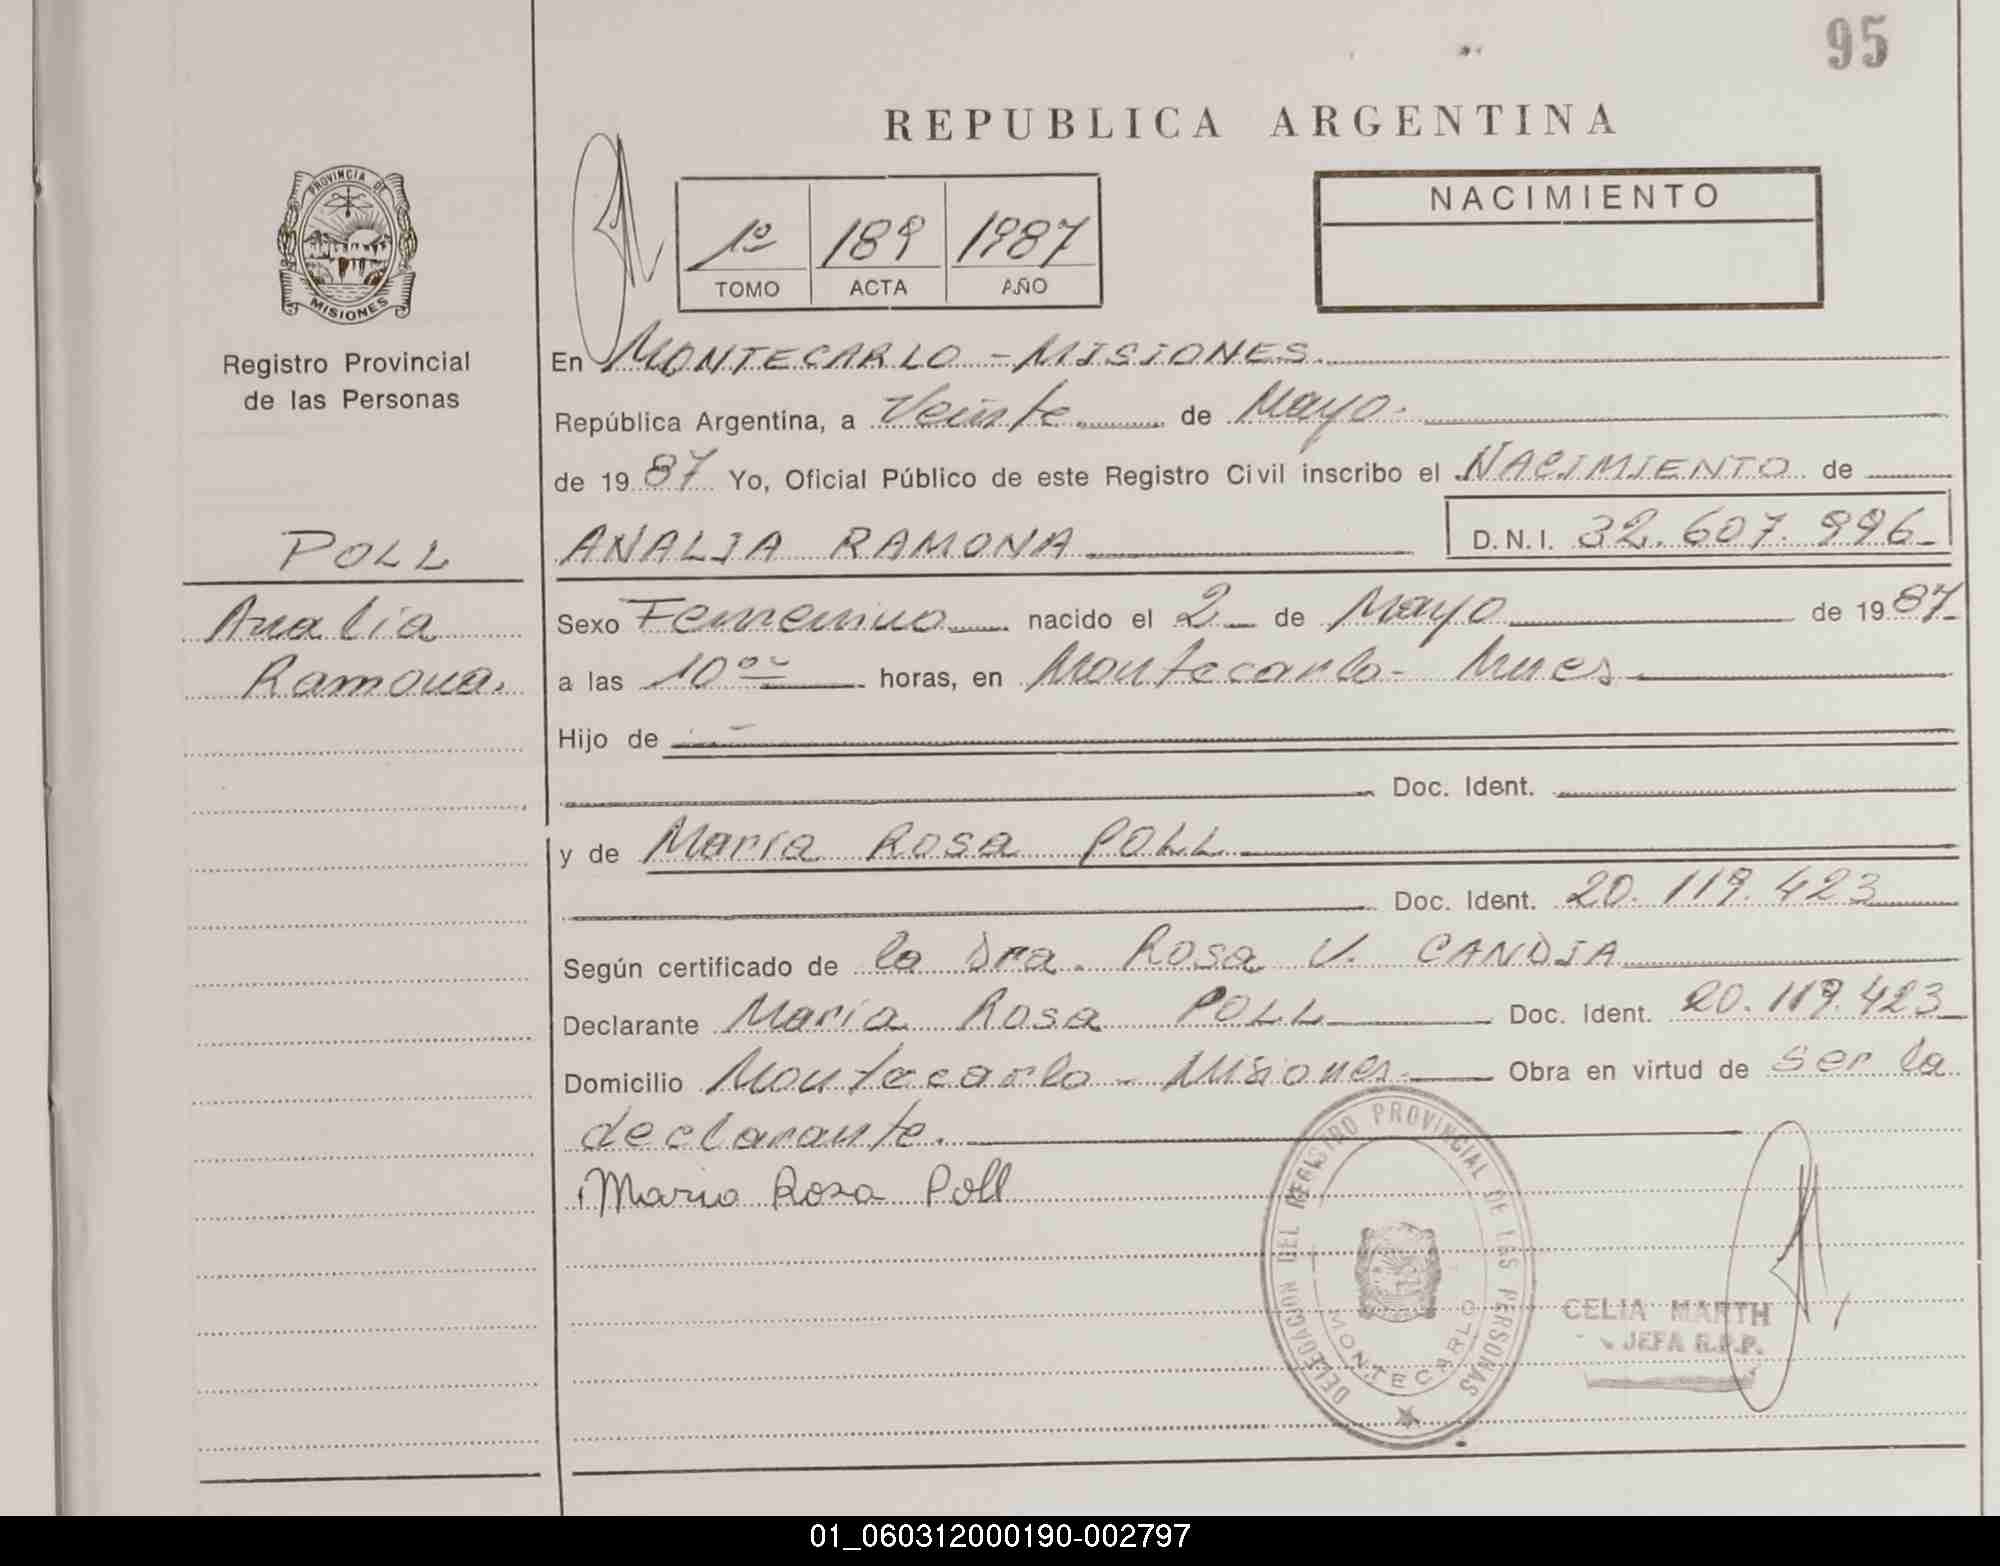 95
REPUBLICA ARGENTINA
PROVINCIA DE
MISIONES
Registro Provincial
de las Personas
1º 189 1987
TOMO ACTA AÑO
NACIMIENTO
En MONTECARLO - MISIONES
República Argentina, a Veinte de Mayo.
de 19 87 Yo, Oficial Público de este Registro Civil inscribo el NACIMIENTO de
POLL
ANALIA RAMONA D.N.I. 32.607.996
Analia
Ramona.
Sexo Femenino nacido el 2 de Mayo de 19 87
a las 10 ºº horas, en Montecarlo - Mnes
Hijo de
Doc. Ident.
y de María Rosa POLL
Doc. Ident. 20.119.423
Según certificado de la Dra. Rosa V. CANDIA
Declarante María Rosa POLL Doc. Ident. 20.119.423
Domicilio Montecarlo - Misiones Obra en virtud de ser la
declarante.
Maria Rosa Poll
DELEGACION DEL REGISTRO PROVINCIAL DE LAS PERSONAS
MONTECARLO
CELIA MARTH
JEFA R.P.P.
01_060312000190-002797